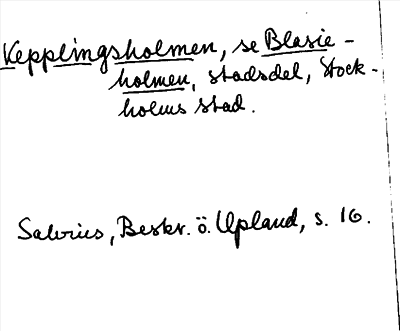 Kepplingsholmen, se Blasie-
holmen, stadsdel, Stock-
holms stad.
Salvius, Beskr. ö. Upland, s. 16.